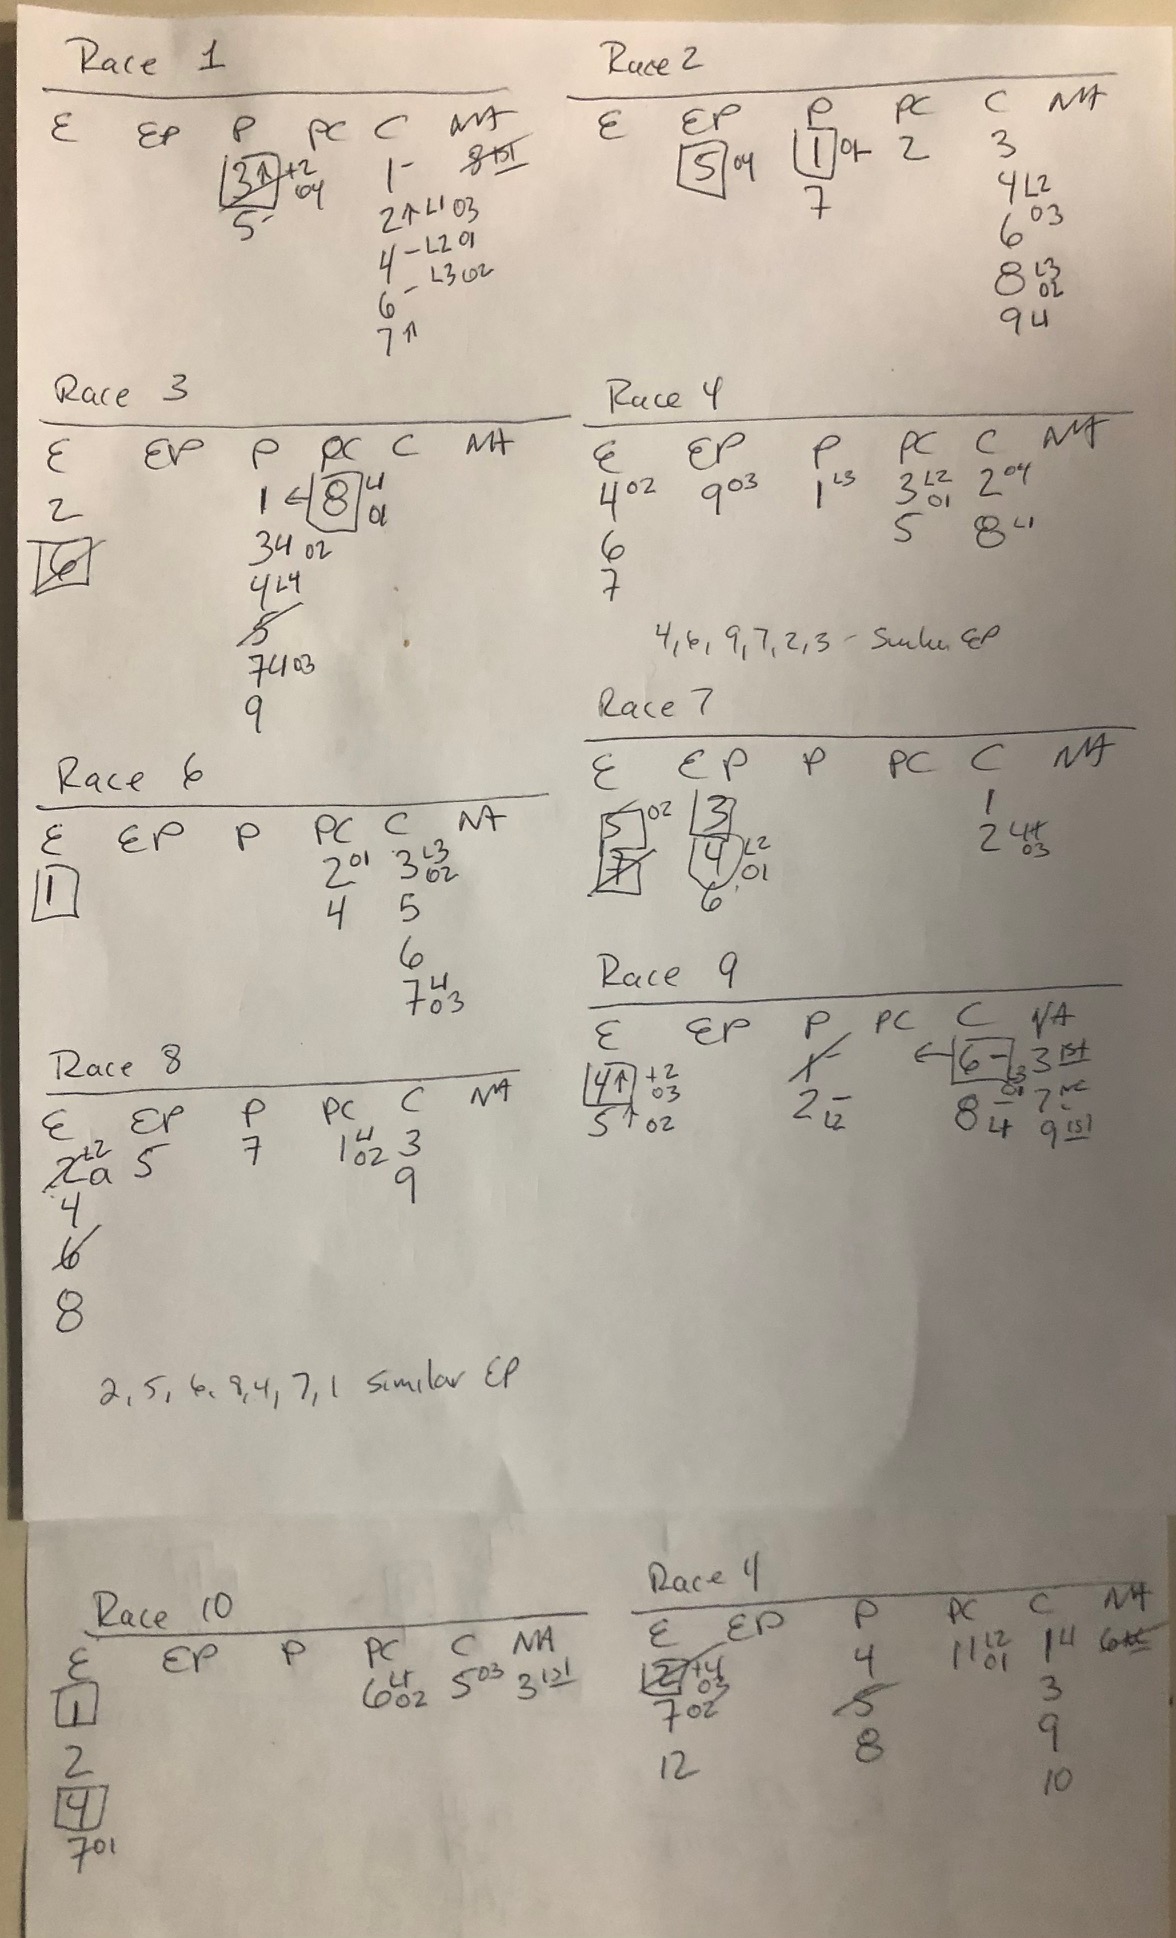 Race 1
E EP P PC C NA
3↑ +2 04 1- 8 1st
5- 2↑ L1 03
4- L2 01
6- L3 02
7↑
Race 2
E EP P PC C NA
5 04 1 01 2 3
7 4 L2
6 03
8 L3 02
9 L1
Race 3
E EP P PC C NA
2 1 ← 8 L1 01
6 3 L1 02
4 L4
5
7 L1 03
9
Race 4
E EP P PC C NA
4 02 9 03 1 L3 3 L2 01 2 04
6 5 8 L1
7
4, 6, 9, 7, 2, 3 - EP
Race 6
E EP P PC C NA
1 2 01 3 L3 02
4 5
6
7 L1 03
Race 7
E EP P PC C NA
5 02 3 1
7 4 L2 01 2 03
6
Race 8
E EP P PC C NA
2 5 7 1 L1 02 3
4 9
6
8
2, 5, 6, 8, 4, 7, 1 Similar EP
Race 9
E EP P PC C NA
4↑ +2 03 1- ← 6- L3 3 1st
5↑ 02 2- L2 8- 01 L1 7
9 1st
Race 10
E EP P PC C NA
1 6 L1 02 5 03 3 1st
2
4
7 01
Race 4
E EP P PC C NA
2 +4 03 4 11 L2 01 1 L1 6
7 02 5 3
12 8 9
10